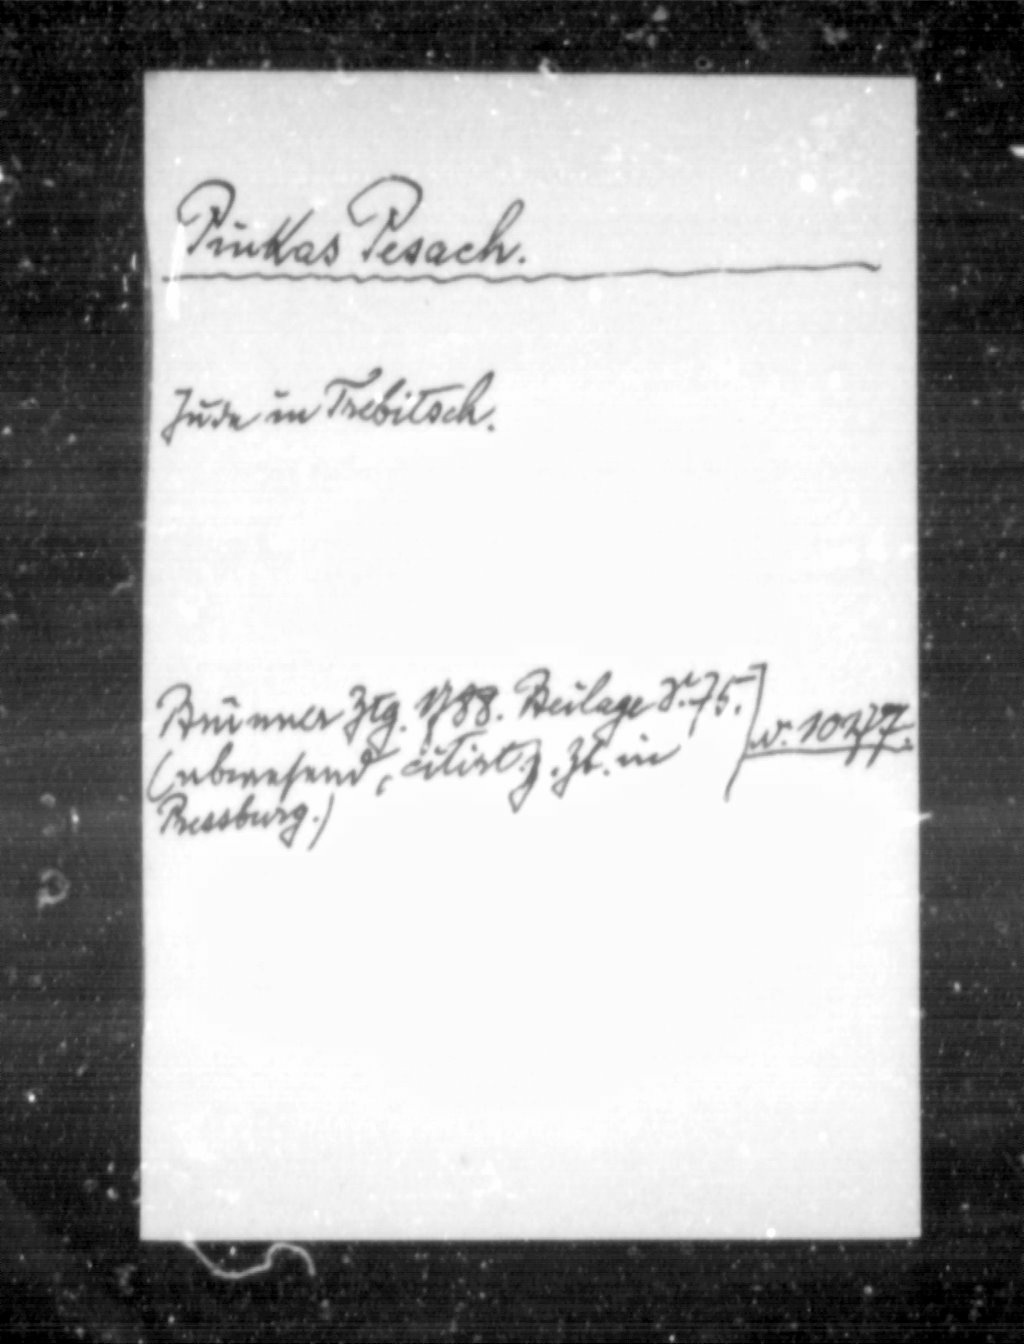 Pinkas Pesach.
Jude in Trebitsch.
Brünner Ztg. 1788. Beilage S. 75.
(abwesend, citirt z. Zt. in
Pressburg.)
v. 10277.